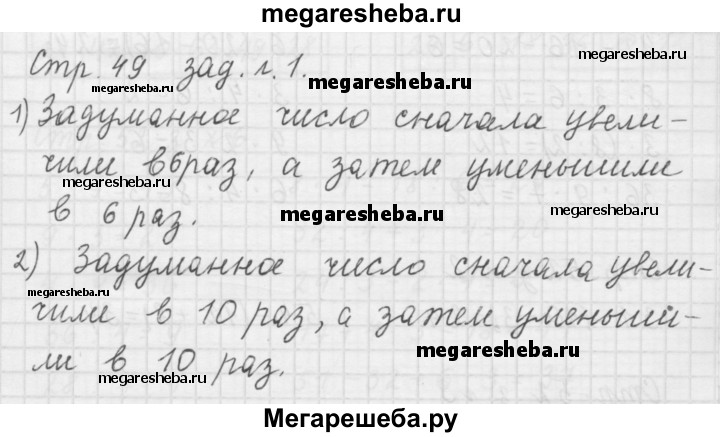 megaresheba.ru
Стр. 49 зад. г. 1.
megaresheba.ru
megaresheba.ru
megaresheba.ru
1) Задуманное число сначала увели-
чили в 6 раз, а затем уменьшили
megaresheba.ru
в 6 раз.
megaresheba.ru
megaresheba.ru
2) Задуманное число сначала увели-
megaresheba.ru
чили в 10 раз, а затем уменьший-
megaresheba.ru
ли в 10 раз.
megaresheba.ru
Мегарешеба.ру